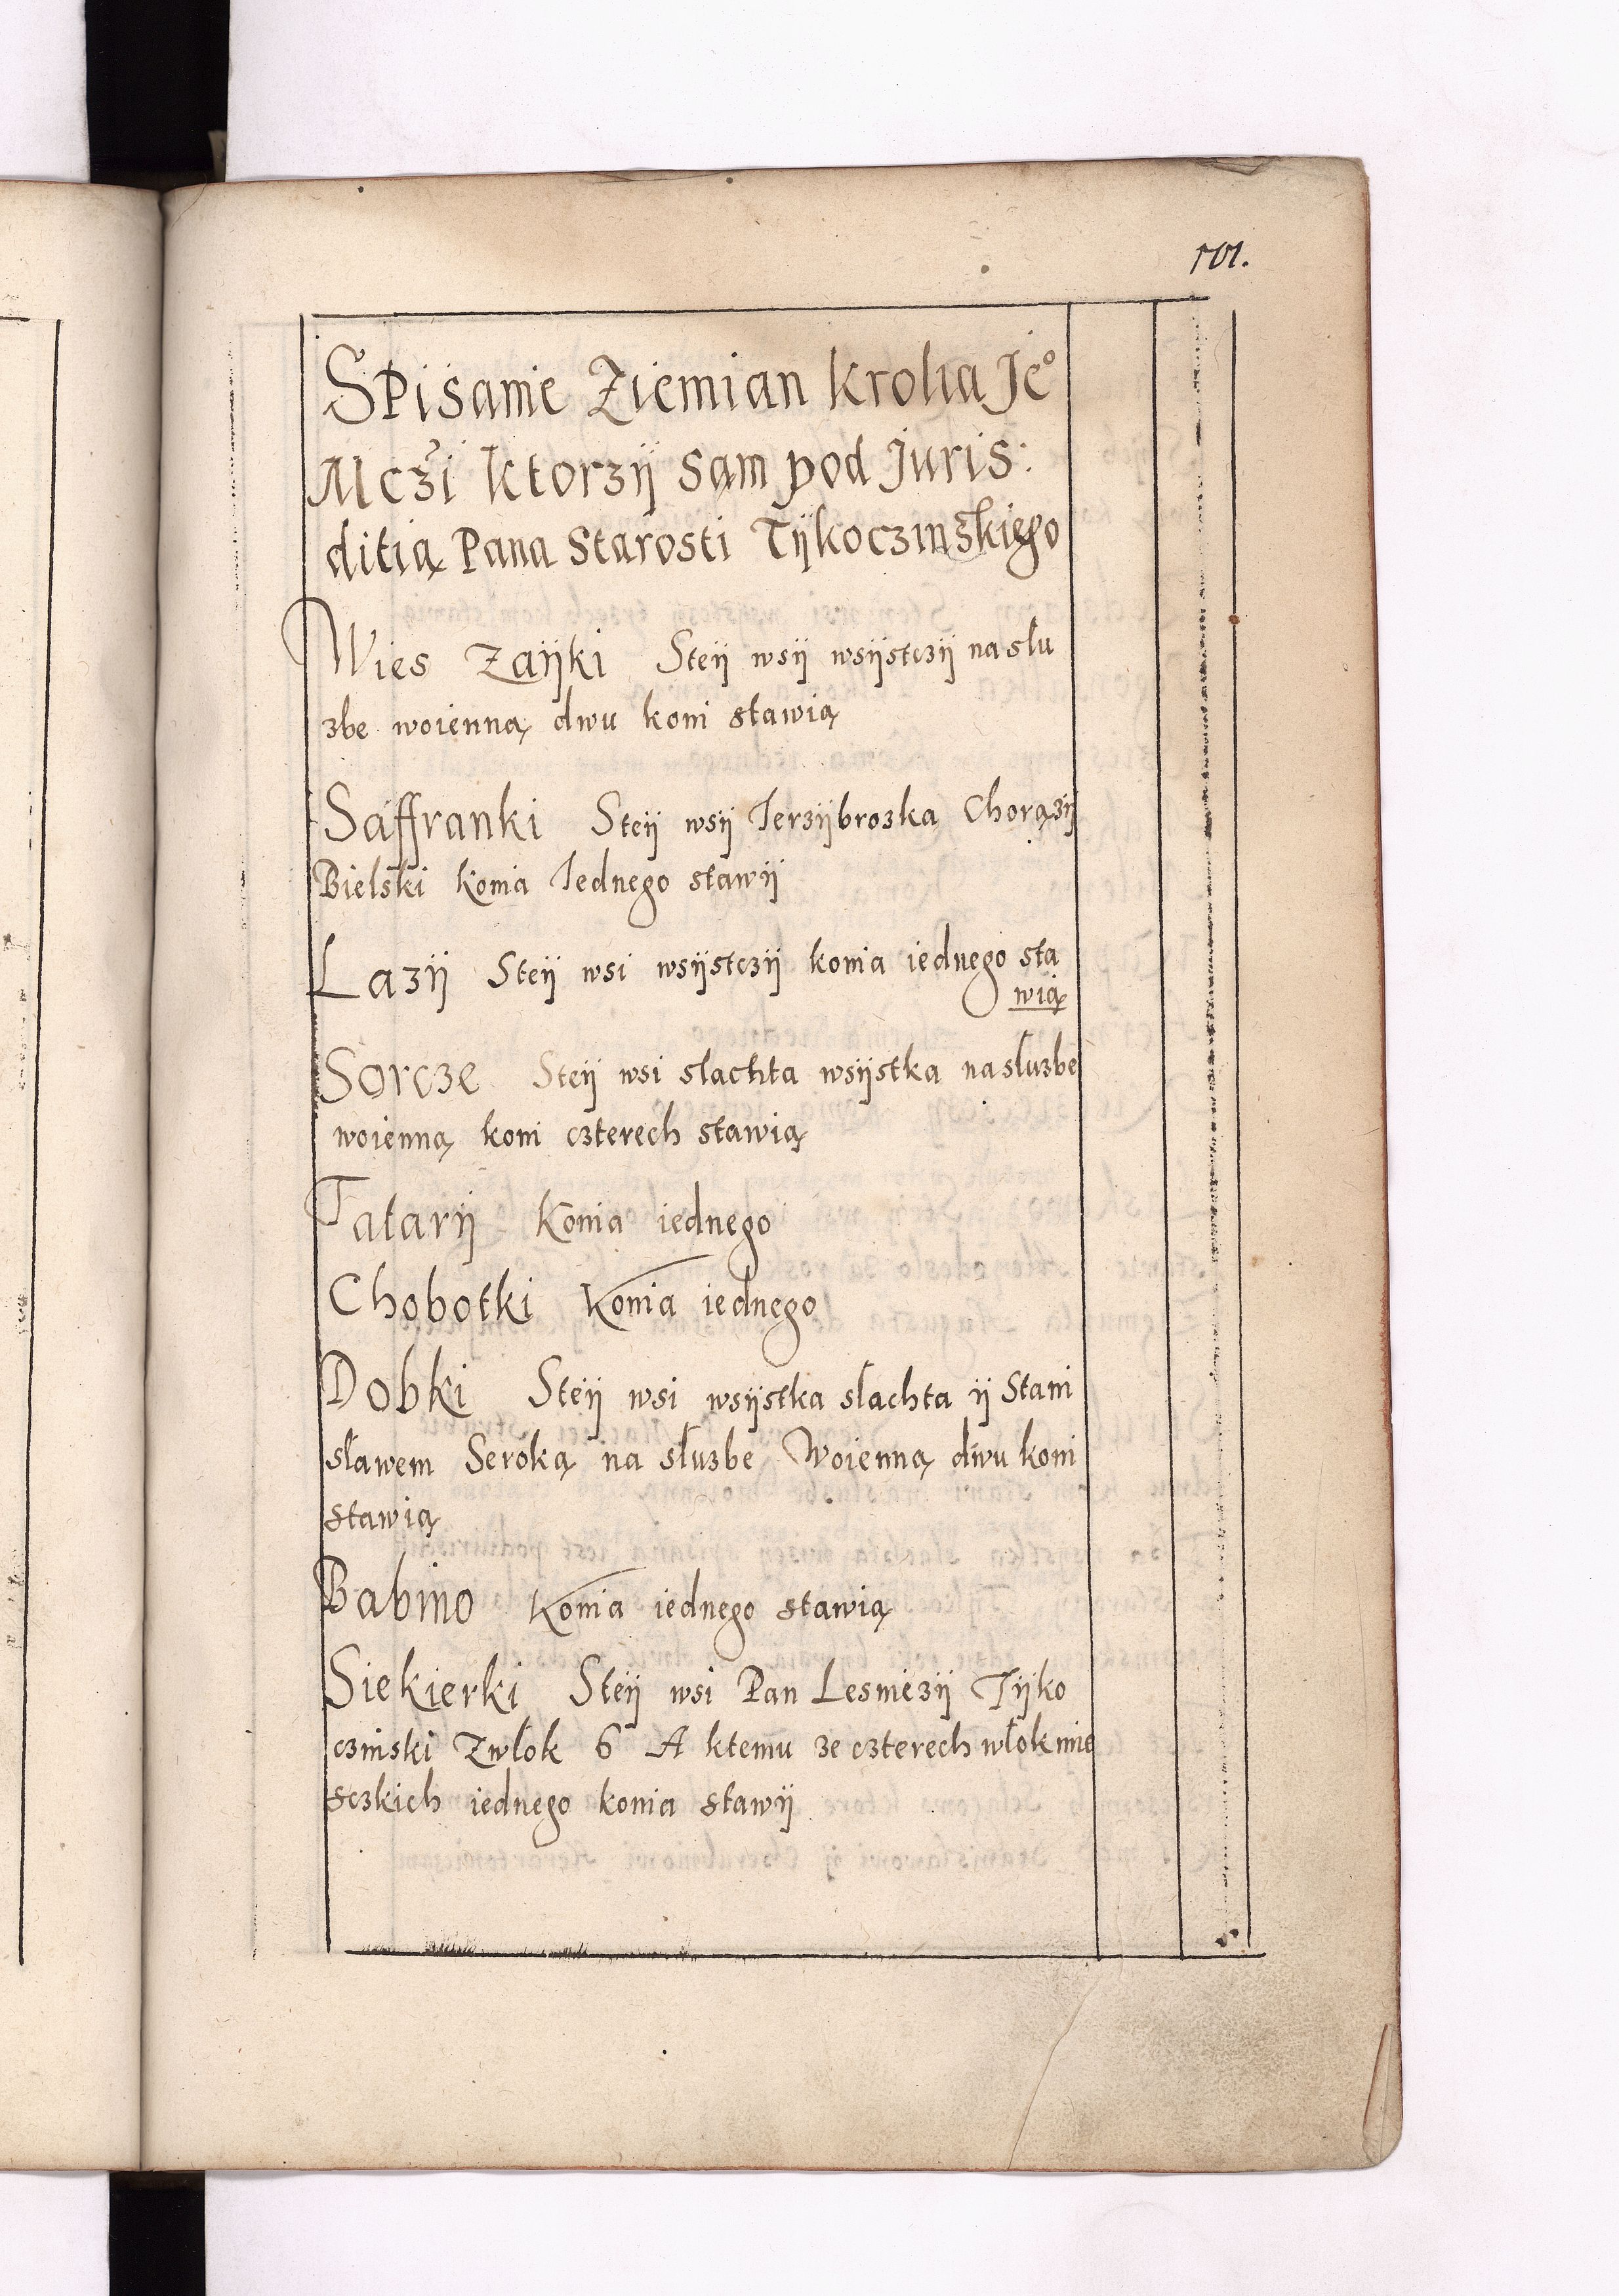 101.
Spisanie Ziemian krolia Je°
Mczi ktorzÿ sąm pod Juris:
ditią Pana Starosti Tÿkoczinskiego
Wies Zaÿki Steÿ wsÿ wsÿstczÿ na slu
zbe woienną dwu koni stawią
Saffranki Steÿ wsÿ Jerzÿ brozka Chorązÿ
Bielski konia Jednego stawÿ
Lazÿ Steÿ wsi wsÿstczÿ konia iednego sta
wią
Sorcze Steÿ wsi slachta wsÿstka na sluzbe
woienną koni czterech stawią
Tatarÿ Konia iednego
Chobotki Konia iednego
Dobki Steÿ wsi wsÿstka slachta ÿ Stani
sławem Seroką na służbe Woienną dwu koni
stawią
Babino Konia iednego stawią
Siekierki Steÿ wsi Pan Lesniczÿ Tÿko
czinski Zwłok 6 A ktemu ze czterech włok mie
sczkich iednego konia stawÿ